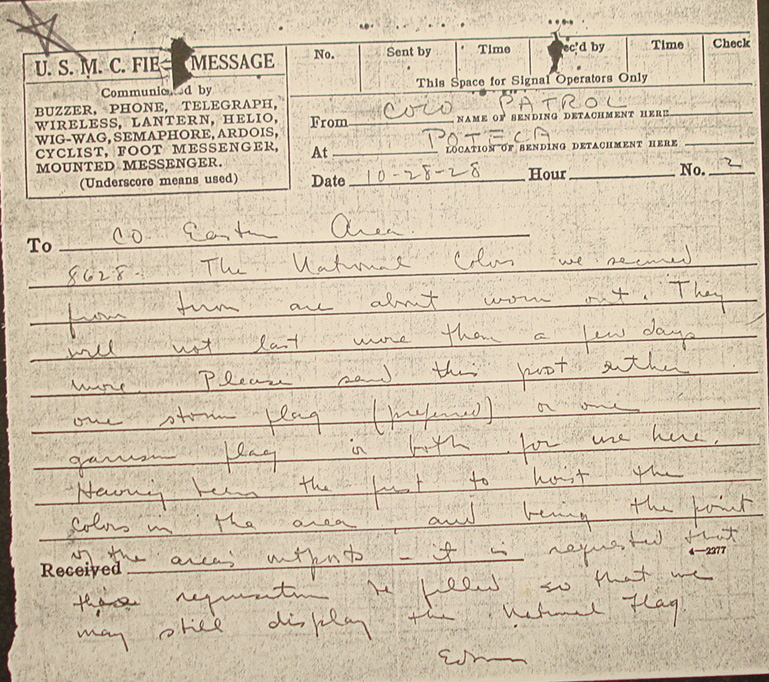 U. S. M. C. FIE MESSAGE
Communic d by
BUZZER, PHONE, TELEGRAPH,
WIRELESS, LANTERN, HELIO,
WIG-WAG, SEMAPHORE, ARDOIS,
CYCLIST, FOOT MESSENGER,
MOUNTED MESSENGER.
(Underscore means used)
No. Sent by Time ec'd by Time Check
This Space for Signal Operators Only
From COCO PATROL
NAME OF SENDING DETACHMENT HERE
At POTECA
LOCATION OF SENDING DETACHMENT HERE
Date 10-28-28 Hour No. 2
To CO. Eastern Area.
8628. The National Colors we secured
from are about worn out. They
will not last more than a few days
more. Please send this post either
one storm flag (preferred) or one
garrison flag or both for use here.
Having been the first to hoist the
Colors in the area, and being the point
of the area's outposts - it is requested that
4-2377
Received
requisition be filled so that we
may still display the National Flag.
Edson